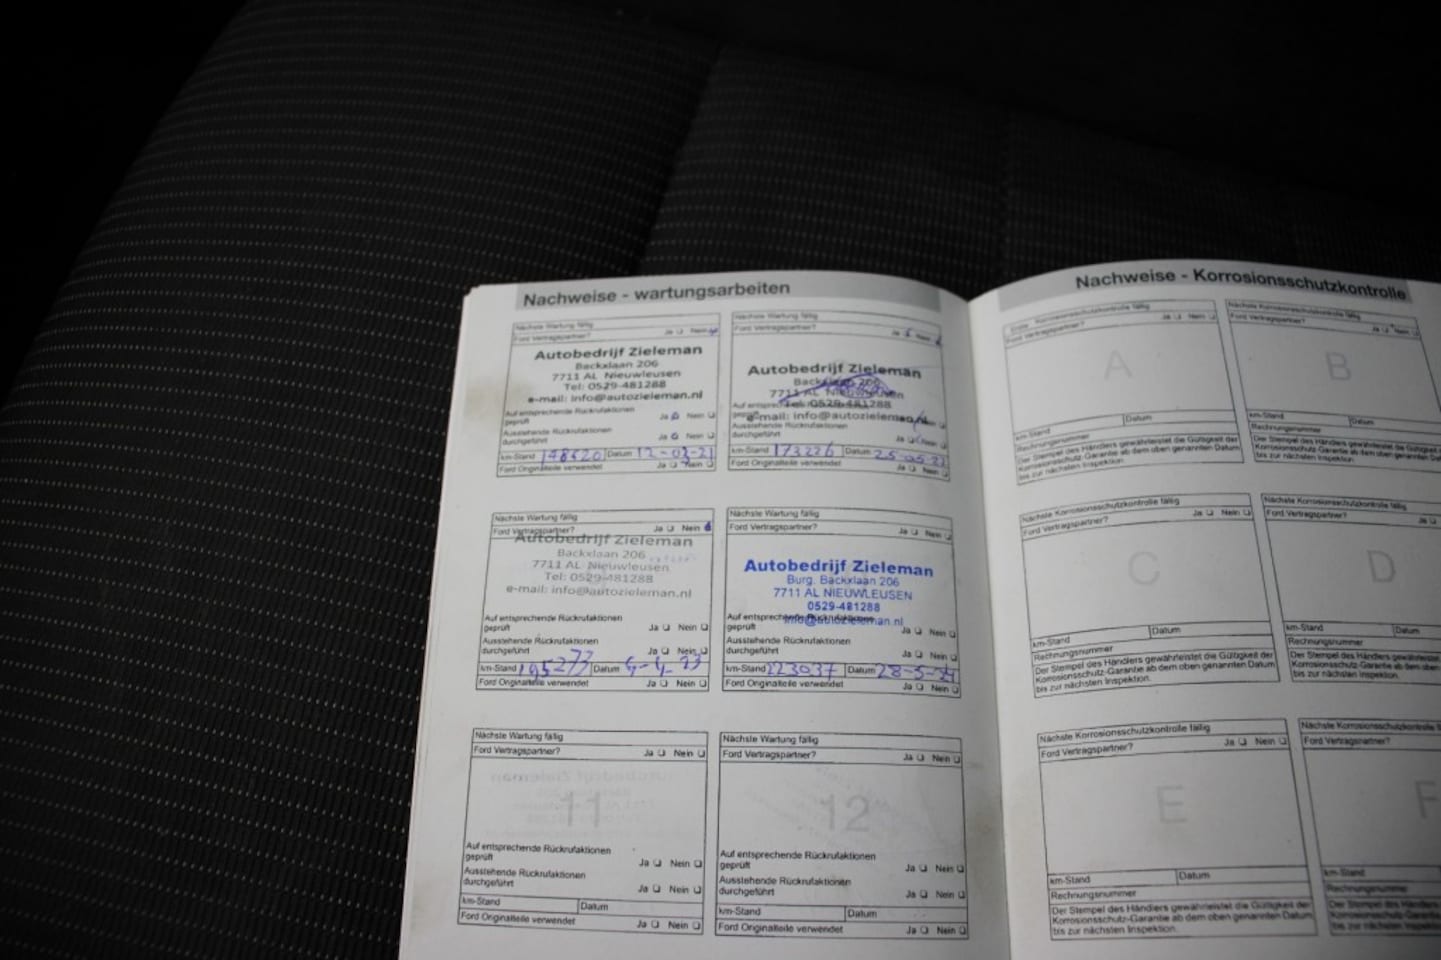 Nachweise - wartungsarbeiten
Nächste Wartung fällig
Ford Vertragspartner? Ja Nein
Autobedrijf Zieleman
Backxlaan 206
7711 AL Nieuwleusen
Tel: 0529-481288
e-mail: info@autozieleman.nl
Auf entsprechende Rückrufaktionen
geprüft Ja Nein
Ausstehende Rückrufaktionen
durchgeführt Ja Nein
km-Stand 148620 Datum 12-03-21
Ford Originalteile verwendet Ja Nein
Nächste Wartung fällig
Ford Vertragspartner? Ja Nein
Autobedrijf Zieleman
Backxlaan 206
7711 AL Nieuwleusen
Tel: 0529-481288
e-mail: info@autozieleman.nl
Ausstehende Rückrufaktionen
durchgeführt Ja Nein
km-Stand 173226 Datum 25-05-22
Ford Originalteile verwendet Ja Nein
Nächste Wartung fällig
Ford Vertragspartner? Ja Nein
Autobedrijf Zieleman
Backxlaan 206
7711 AL Nieuwleusen
Tel: 0529-481288
e-mail: info@autozieleman.nl
Auf entsprechende Rückrufaktionen
geprüft Ja Nein
Ausstehende Rückrufaktionen
durchgeführt Ja Nein
km-Stand 195277 Datum
Ford Originalteile verwendet Ja Nein
Nächste Wartung fällig
Ford Vertragspartner? Ja Nein
Autobedrijf Zieleman
Burg. Backxlaan 206
7711 AL NIEUWLEUSEN
0529-481288
info@autozieleman.nl
Auf entsprechende Rückrufaktionen
geprüft Ja Nein
Ausstehende Rückrufaktionen
durchgeführt Ja Nein
km-Stand 223037 Datum 28-5-24
Ford Originalteile verwendet Ja Nein
Nächste Wartung fällig
Ford Vertragspartner? Ja Nein
11
Auf entsprechende Rückrufaktionen
geprüft Ja Nein
Ausstehende Rückrufaktionen
durchgeführt Ja Nein
km-Stand Datum
Ford Originalteile verwendet Ja Nein
Nächste Wartung fällig
Ford Vertragspartner? Ja Nein
12
Auf entsprechende Rückrufaktionen
geprüft Ja Nein
Ausstehende Rückrufaktionen
durchgeführt Ja Nein
km-Stand Datum
Ford Originalteile verwendet Ja Nein
Nachweise - Korrosionsschutzkontrolle
Erste Korrosionsschutzkontrolle fällig
Ford Vertragspartner? Ja Nein
A
km-Stand Datum
Rechnungsnummer
Der Stempel des Händlers gewährleistet die Gültigkeit der
Korrosionsschutz-Garantie ab dem oben genannten Datum
bis zur nächsten Inspektion.
Nächste Korrosionsschutzkontrolle fällig
Ford Vertragspartner? Ja Nein
B
km-Stand Datum
Rechnungsnummer
Der Stempel des Händlers gewährleistet die Gültigkeit
Korrosionsschutz-Garantie ab dem oben genannten
bis zur nächsten Inspektion.
Nächste Korrosionsschutzkontrolle fällig
Ford Vertragspartner? Ja Nein
C
km-Stand Datum
Rechnungsnummer
Der Stempel des Händlers gewährleistet die Gültigkeit der
Korrosionsschutz-Garantie ab dem oben genannten Datum
bis zur nächsten Inspektion.
Nächste Korrosionsschutzkontrolle fällig
Ford Vertragspartner? Ja
D
km-Stand Datum
Rechnungsnummer
Der Stempel des Händlers gewährleistet die
Korrosionsschutz-Garantie ab dem oben
bis zur nächsten Inspektion.
Nächste Korrosionsschutzkontrolle fällig
Ford Vertragspartner? Ja Nein
E
km-Stand Datum
Rechnungsnummer
Der Stempel des Händlers gewährleistet die Gültigkeit der
Korrosionsschutz-Garantie ab dem oben genannten Datum
bis zur nächsten Inspektion.
Nächste Korrosionsschutzkontrolle
Ford Vertragspartner?
F
km-Stand
Rechnungsnummer
Der Stempel des Händlers
Korrosionsschutz-Garantie ab dem
bis zur nächsten Inspektion.